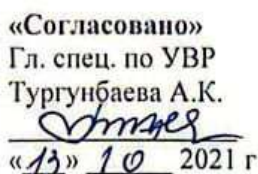 «Согласовано»
Гл. спец. по УВР
Тургунбаева А.К.
«13» 10 2021 г